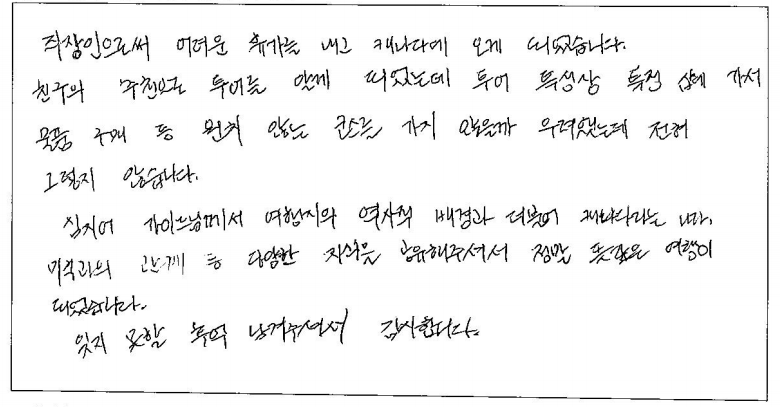 직장인으로써 어려운 휴가를 내고 캐나다에 오게 되었습니다.
친구의 추천으로 투어를 알게 되었는데 투어 특성상 특정 샵에 가서
물품 구매 등 원치 않는 코스를 가지 않을까 우려했는데 전혀
그렇지 않습니다.
심지어 가이드님께서 여행지의 역사적 배경과 더불어 캐나다라는 나라,
미국과의 관계 등 다양한 지식을 공유해주셔서 정말 뜻깊은 여행이
되었습니다.
잊지 못할 추억 남겨주셔서 감사합니다.